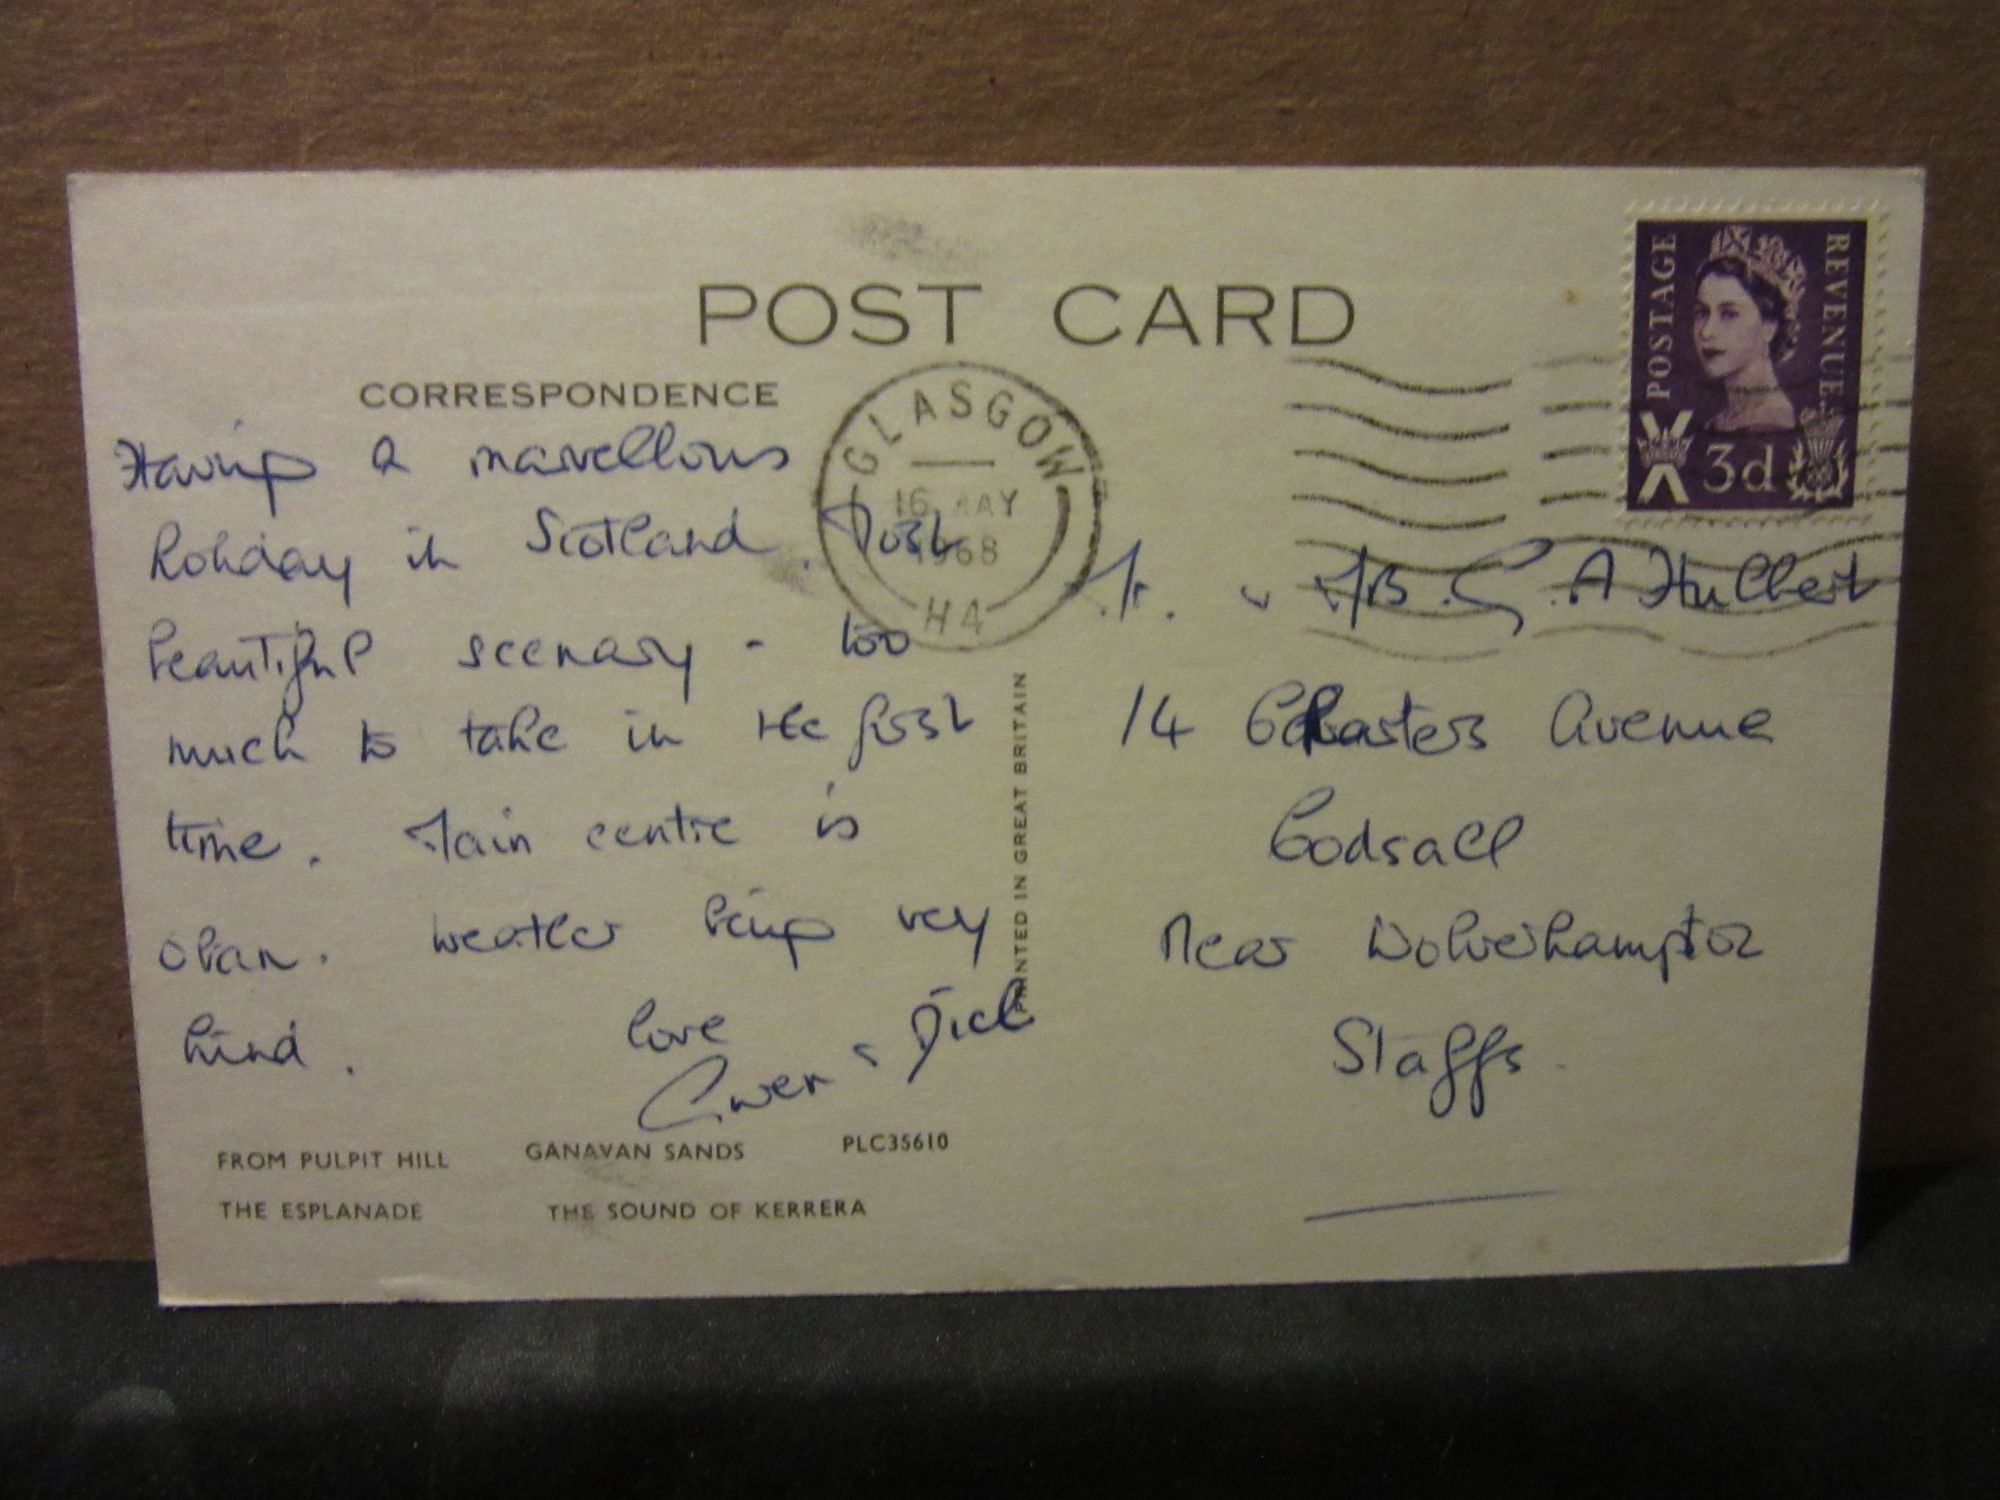 POST CARD
CORRESPONDENCE
Having a marvellous
holiday in Scotland. Most
beautiful scenary - too
much to take in the first
time. Main centre is
Oban. Weather being very
kind.
love
Gwen & Dick
FROM PULPIT HILL
GANAVAN SANDS
PLC35610
THE ESPLANADE
THE SOUND OF KERRERA
PRINTED IN GREAT BRITAIN
GLASGOW
16 MAY
1968
H4
POSTAGE
REVENUE
3d
Mr. & Mrs. G. A Hulbert
14 Avenue
Codsall
Near Wolverhampton
Staffs.